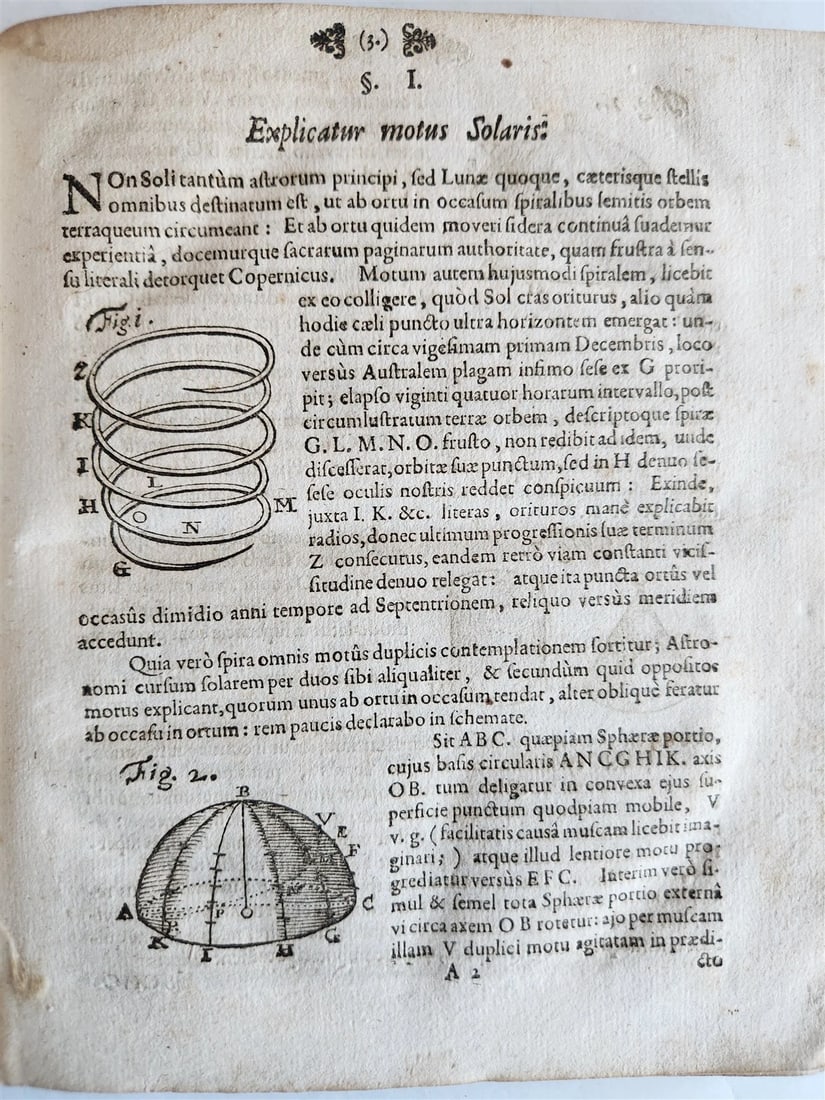 (3.)
§. I.
Explicatur motus Solaris.
NOn Soli tantùm astrorum principi, sed Lunæ quoque, cæterisque stellis
omnibus destinatum est, ut ab ortu in occasum spiralibus semitis orbem
terraqueum circumeant: Et ab ortu quidem moveri sidera continuâ suademur
experientiâ, docemurque sacrarum paginarum authoritate, quam frustra à sen-
su literali detorquet Copernicus. Motum autem hujusmodi spiralem, licebit
ex eo colligere, quòd Sol cras oriturus, alio quàm
hodie cæli puncto ultra horizontem emergat: un-
de cùm circa vigesimam primam Decembris, loco
versùs Australem plagam infimo sese ex G prori-
pit; elapso viginti quatuor horarum intervallo, post
circumlustratum terræ orbem, descriptoque spiræ
G. L. M. N. O. frusto, non redibit ad idem, unde
discesserat, orbitæ suæ punctum, sed in H denuo se-
sese oculis nostris reddet conspicuum: Exinde,
juxta I. K. &c. literas, orituros manè explicabit
radios, donec ultimum progressionis suæ terminum
Z consecutus, eandem retrò viam constanti vicis-
situdine denuo relegat: atque ita puncta ortûs vel
occasûs dimidio anni tempore ad Septentrionem, reliquo versùs meridiem
accedunt.
Fig. 1.
Z
K
I
L
H
M
O
N
G
Quia verò spira omnis motûs duplicis contemplationem sortitur; Astro-
nomi cursum solarem per duos sibi aliqualiter, & secundùm quid oppositos
motus explicant, quorum unus ab ortu in occasum tendat, alter obliquè feratur
ab occasu in ortum: rem paucis declarabo in schemate.
Sit A B C. quæpiam Sphæræ portio,
cujus basis circularis A N C G H I K. axis
O B. tum deligatur in convexa ejus su-
perficie punctum quodpiam mobile, V
v. g. (facilitatis causâ muscam licebit ima-
ginari;) atque illud lentiore motu pro-
grediatur versùs E F C. Interim verò si-
mul & semel tota Sphæræ portio externâ
vi circa axem O B rotetur: ajo per muscam
illam V duplici motu agitatam in prædi-
Fig. 2.
B
V
Æ
F
A
P
O
C
K
I
H
G
A 2
cto